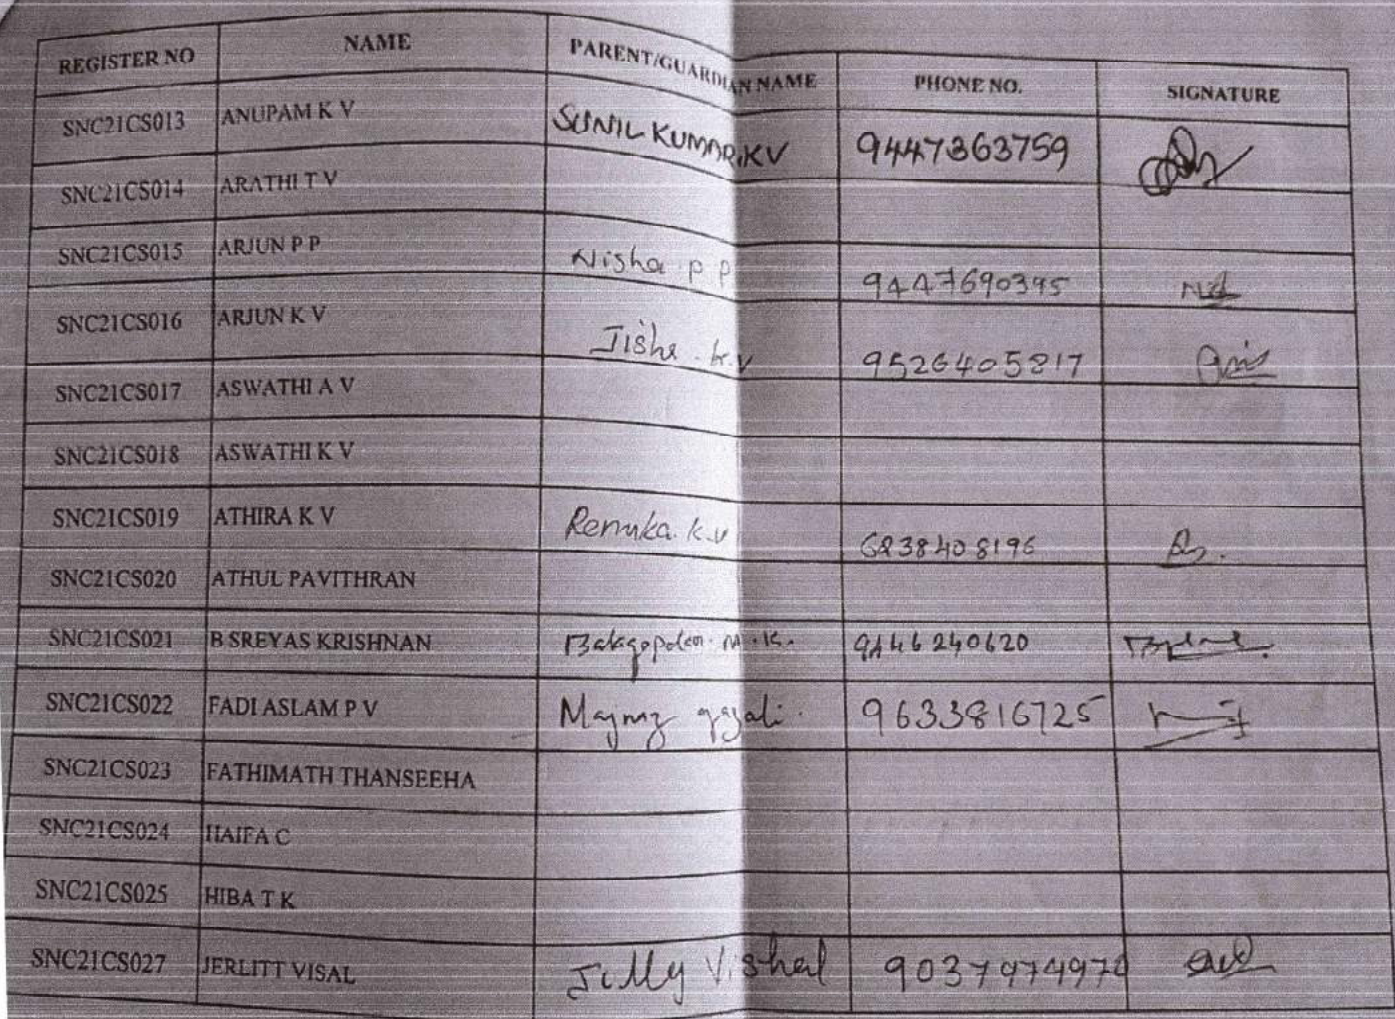 REGISTER NO NAME PARENT/GUARDIAN NAME PHONE NO. SIGNATURE
SNC21CS013 ANUPAM K V SUNIL KUMAR.KV 9447363759
SNC21CS014 ARATHI T V
SNC21CS015 ARJUN P P Nisha p p 9447690395
SNC21CS016 ARJUN K V Jisha k.v 9526405817
SNC21CS017 ASWATHI A V
SNC21CS018 ASWATHI K V
SNC21CS019 ATHIRA K V Renuka. k.v 6238408196
SNC21CS020 ATHUL PAVITHRAN
SNC21CS021 B SREYAS KRISHNAN Balagopalan. M.K. 9446240620
SNC21CS022 FADI ASLAM P V 9633816725
SNC21CS023 FATHIMATH THANSEEHA
SNC21CS024 HAIFA C
SNC21CS025 HIBA T K
SNC21CS027 JERLITT VISAL Jilly Vishal 9037974970